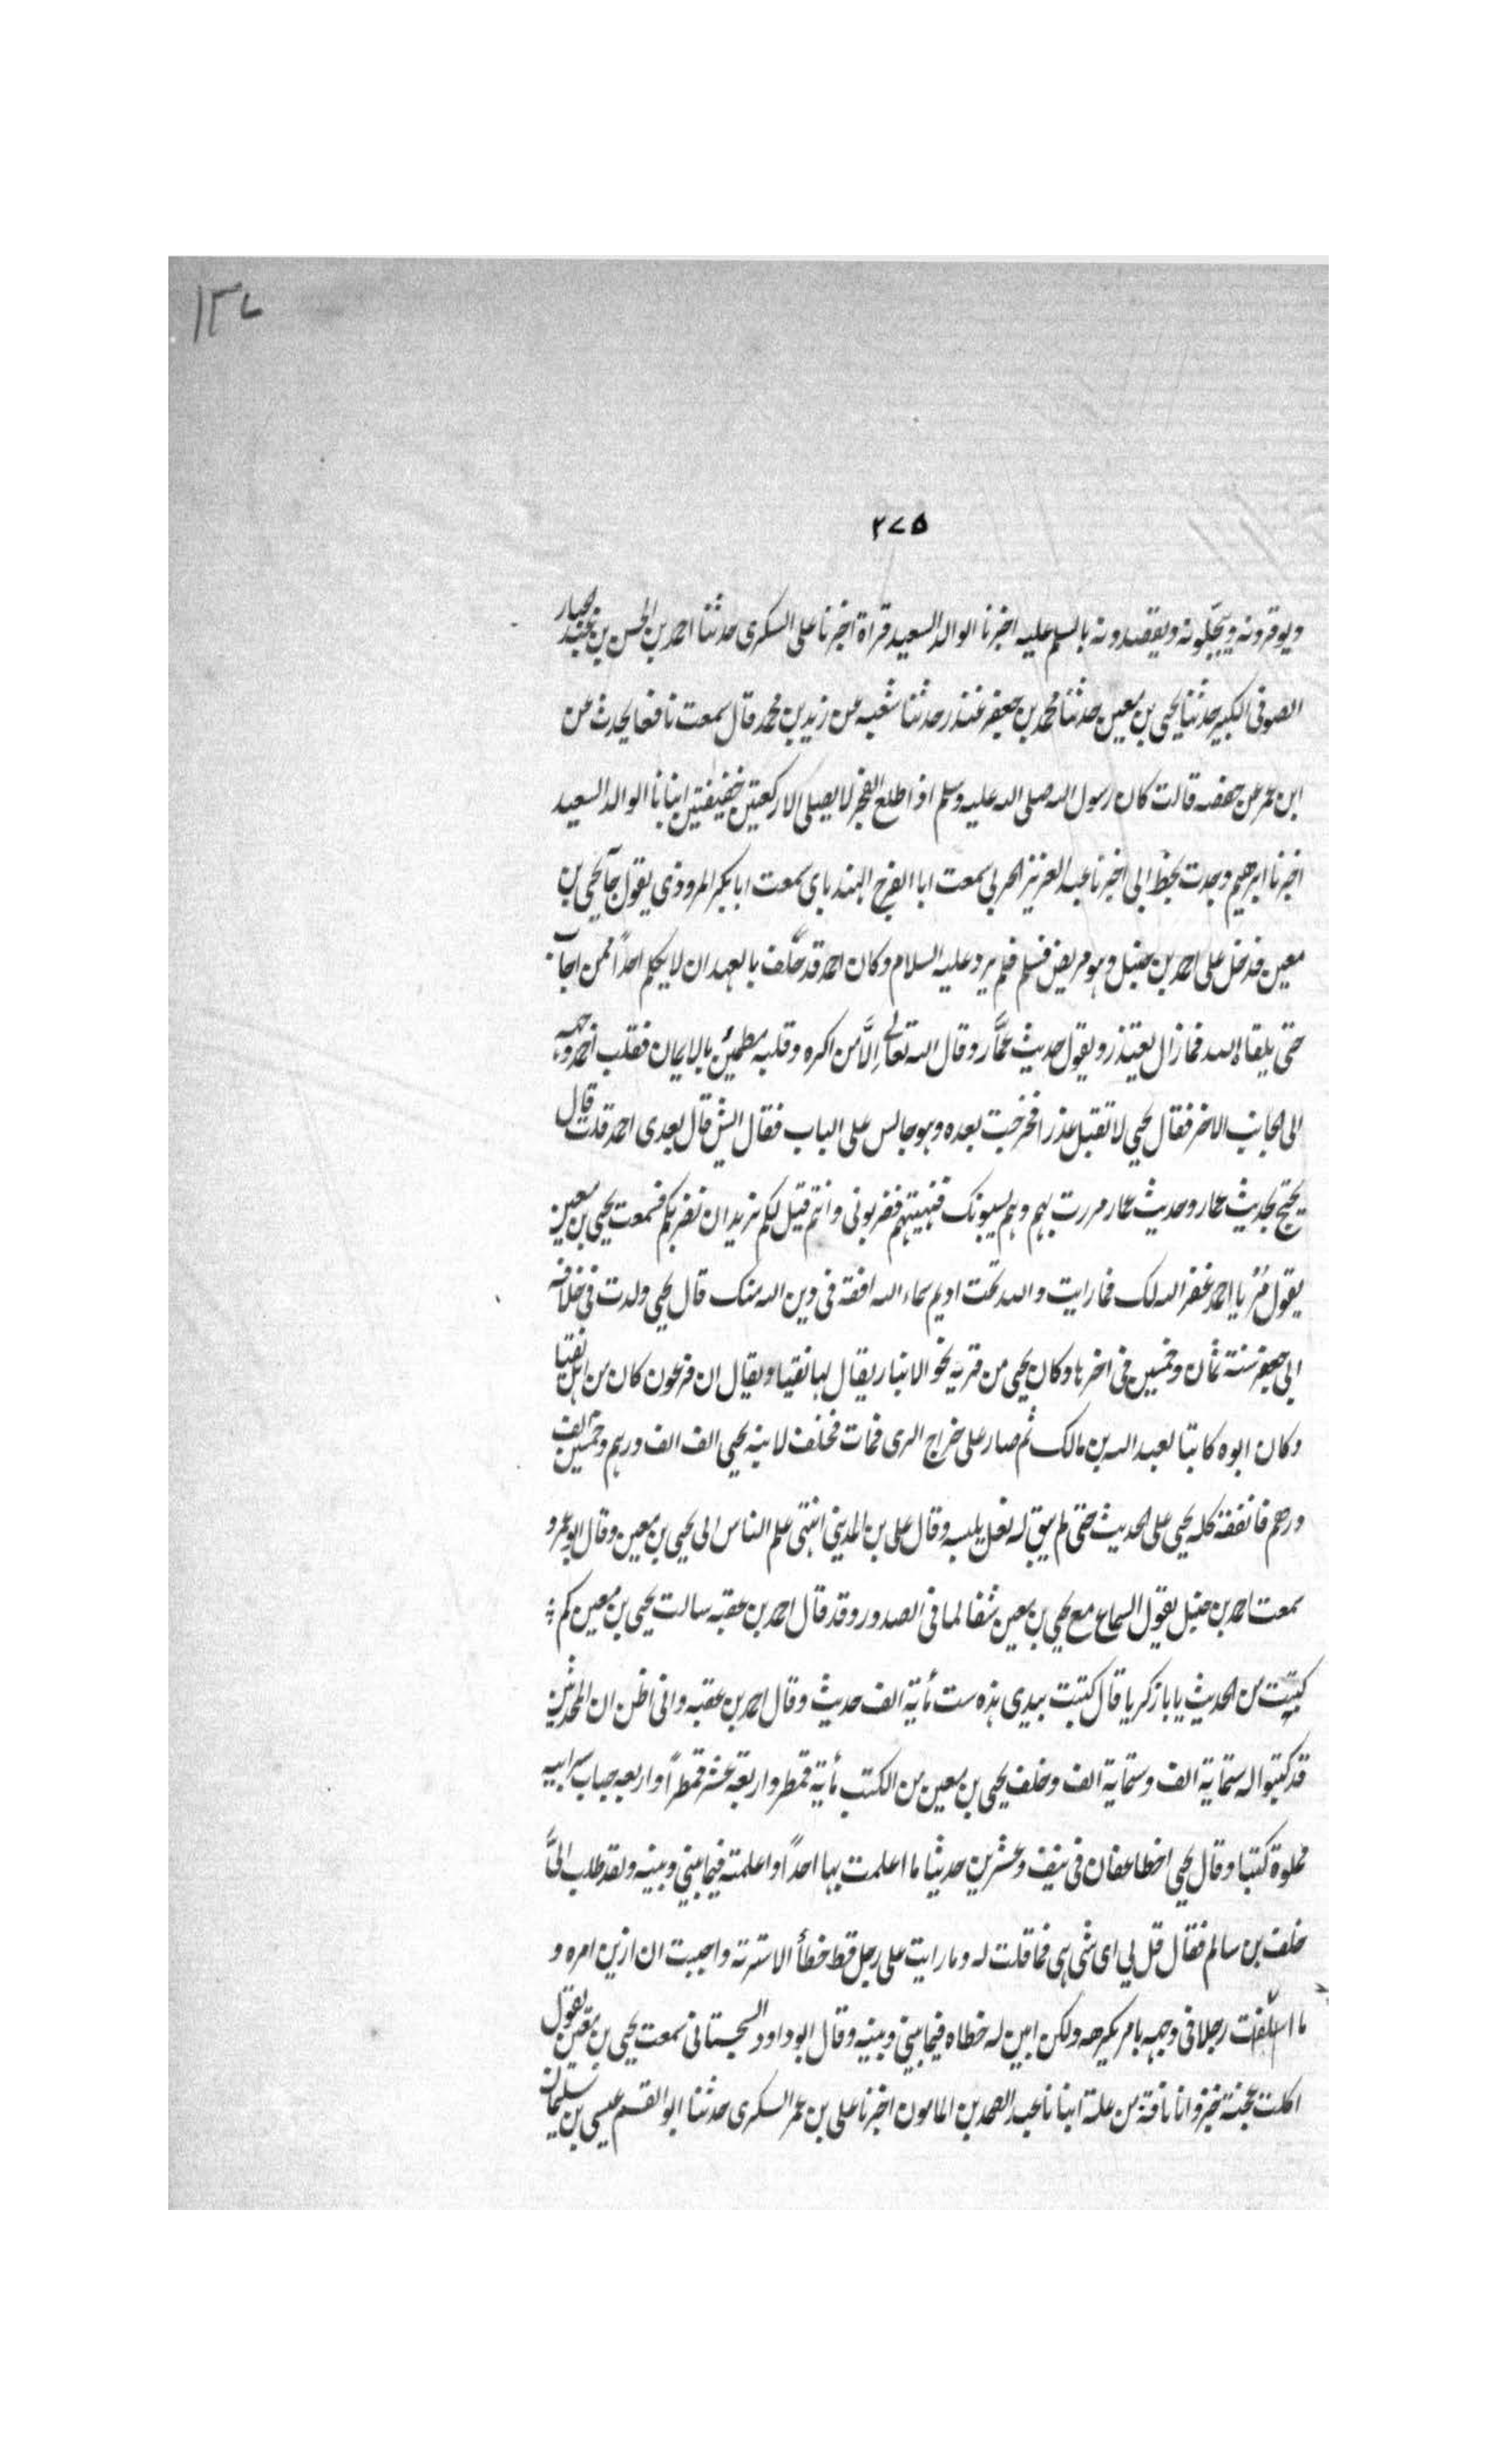 ١٣٧
٢٧٥
ويوقرونه ويبجلونه ويقصدونه بالسلم عليه اخبرنا الوالد السعيد قراة اخبرنا على السكرى حدثنا احمد بن الحسن بن عبد الجبار
الصوفى الكبير حدثنا يحيى بن معين حدثنا محمد بن جعفر غندر حدثنا شعبه عن زيد بن محمد قال سمعت نافعا يحدث عن
ابن عمر عن حفصه قالت كان رسول الله صلى الله عليه وسلم اذا طلع الفجر لا يصلى الا ركعتين خفيفتين انبانا الوالد السعيد
اخبرنا ابرهيم وجدت بخط ابى اخبرنا عبد العزيز الحربى سمعت ابا الفرج الهندباى سمعت ابا بكر المروذى يقول جآ يحيى بن
معين فدخل على احمد بن حنبل وهو مريض فسلم فلم يرد عليه السلام وكان احمد قد حلف بالعهد ان لا يكلم احداً ممن اجاب
حتى يلقاه الله فما زال يعتذر ويقول حديث عمَّار وقال الله تعالى اِلَّا من اكره وقلبه مطمئن بالايمان فقلب احمد وجهه
الى الجانب الاخر فقال يحيى لا تقبل عذرا فخرجت بعده وهو جالس على الباب فقال ايش قال بعدى احمد قلت قال
يحتج بحديث عمار وحديث عمار مررت بهم وهم يسبونك فنهيتهم فضربونى وانتم قيل لكم نريد ان نضربكم فسمعت يحيى بن معين
يقول مُر يا احمد غفر الله لك فما رايت والله تحت اديم سماء الله افقه فى دين الله منك قال يحيى ولدت فى خلافه
ابى جعفر سنة ثمان وخمسين فى اخرها وكان يحيى من قريه نحو الانبار يقال لها نقيا ويقال ان فرعون كان من اهل نقيا
وكان ابوه كاتبا لعبد الله بن مالك ثم صار على خراج الرى فمات فخلف لابنه يحيى الف الف درهم وخمسين الف
درهم فانفقه كله يحيى على الحديث حتى لم يبق له نعل يلبسه وقال على بن المدينى انتهى علم الناس الى يحيى بن معين وقال ابو عمرو
سمعت احمد بن حنبل يقول السماع مع يحيى بن معين شفا لما فى الصدور وقد قال احمد بن عقبه سالت يحيى بن معين كم
كتبت من الحديث يا با زكريا قال كتبت بيدى هذه ست مأية الف حديث وقال احمد بن عقبه وانى اظن ان المحدثين
قد كتبوا له ستماية الف وستماية الف وخلف يحيى بن معين من الكتب مأية قمطر واربعة عشر قمطراً واربعه حباب شرابيه
مملوة كتبا وقال يحيى اخطا عفان فى نيف وعشرين حديثا ما اعلمت بها احداً واعلمته فيما بينى وبينه ولقد طلب الىَّ
خلف بن سالم فقال قل لى اى شى هى فما قلت له وما رايت على رجل قط خطأ الا سترته واحببت ان ازين امره و
ما استقبلت رجلا فى وجهه بامر يكرهه ولكن ابين له خطاه فيما بينى وبينه وقال ابو داود السجستانى سمعت يحيى بن معين يقول
اكلت عجنة خبز وانا ناقة من علة انبانا عبد الصمد بن المامون اخبرنا على بن عمر السكرى حدثنا ابو القسم عيسى بن سليمان